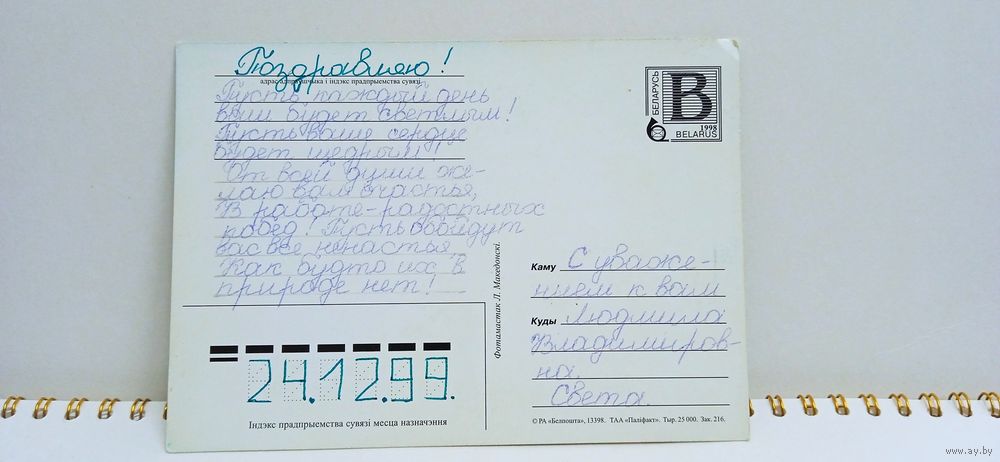 Поздравляю!
адрас адпраўшчыка і індэкс прадпрыемства сувязі
Пусть каждый день
ваш будет светлым!
Пусть ваше сердце
будет щедрым!
От всей души же-
лаю вам счастья,
В работе-радостных
побед! Пусть обойдут
вас все ненастья,
Как будто их в
природе нет!
24.12.99.
Індэкс прадпрыемства сувязі месца назначэння
Фотамастак Л. Македонскі.
БЕЛАРУСЬ
B
1998
BELARUS
Каму С уваже-
нием к вам
Куды Людмила
Владимиров-
на.
Света
© РА «Белпошта», 13398. ТАА «Паліфакт». Тыр. 25 000. Зак. 216.
www.ay.by